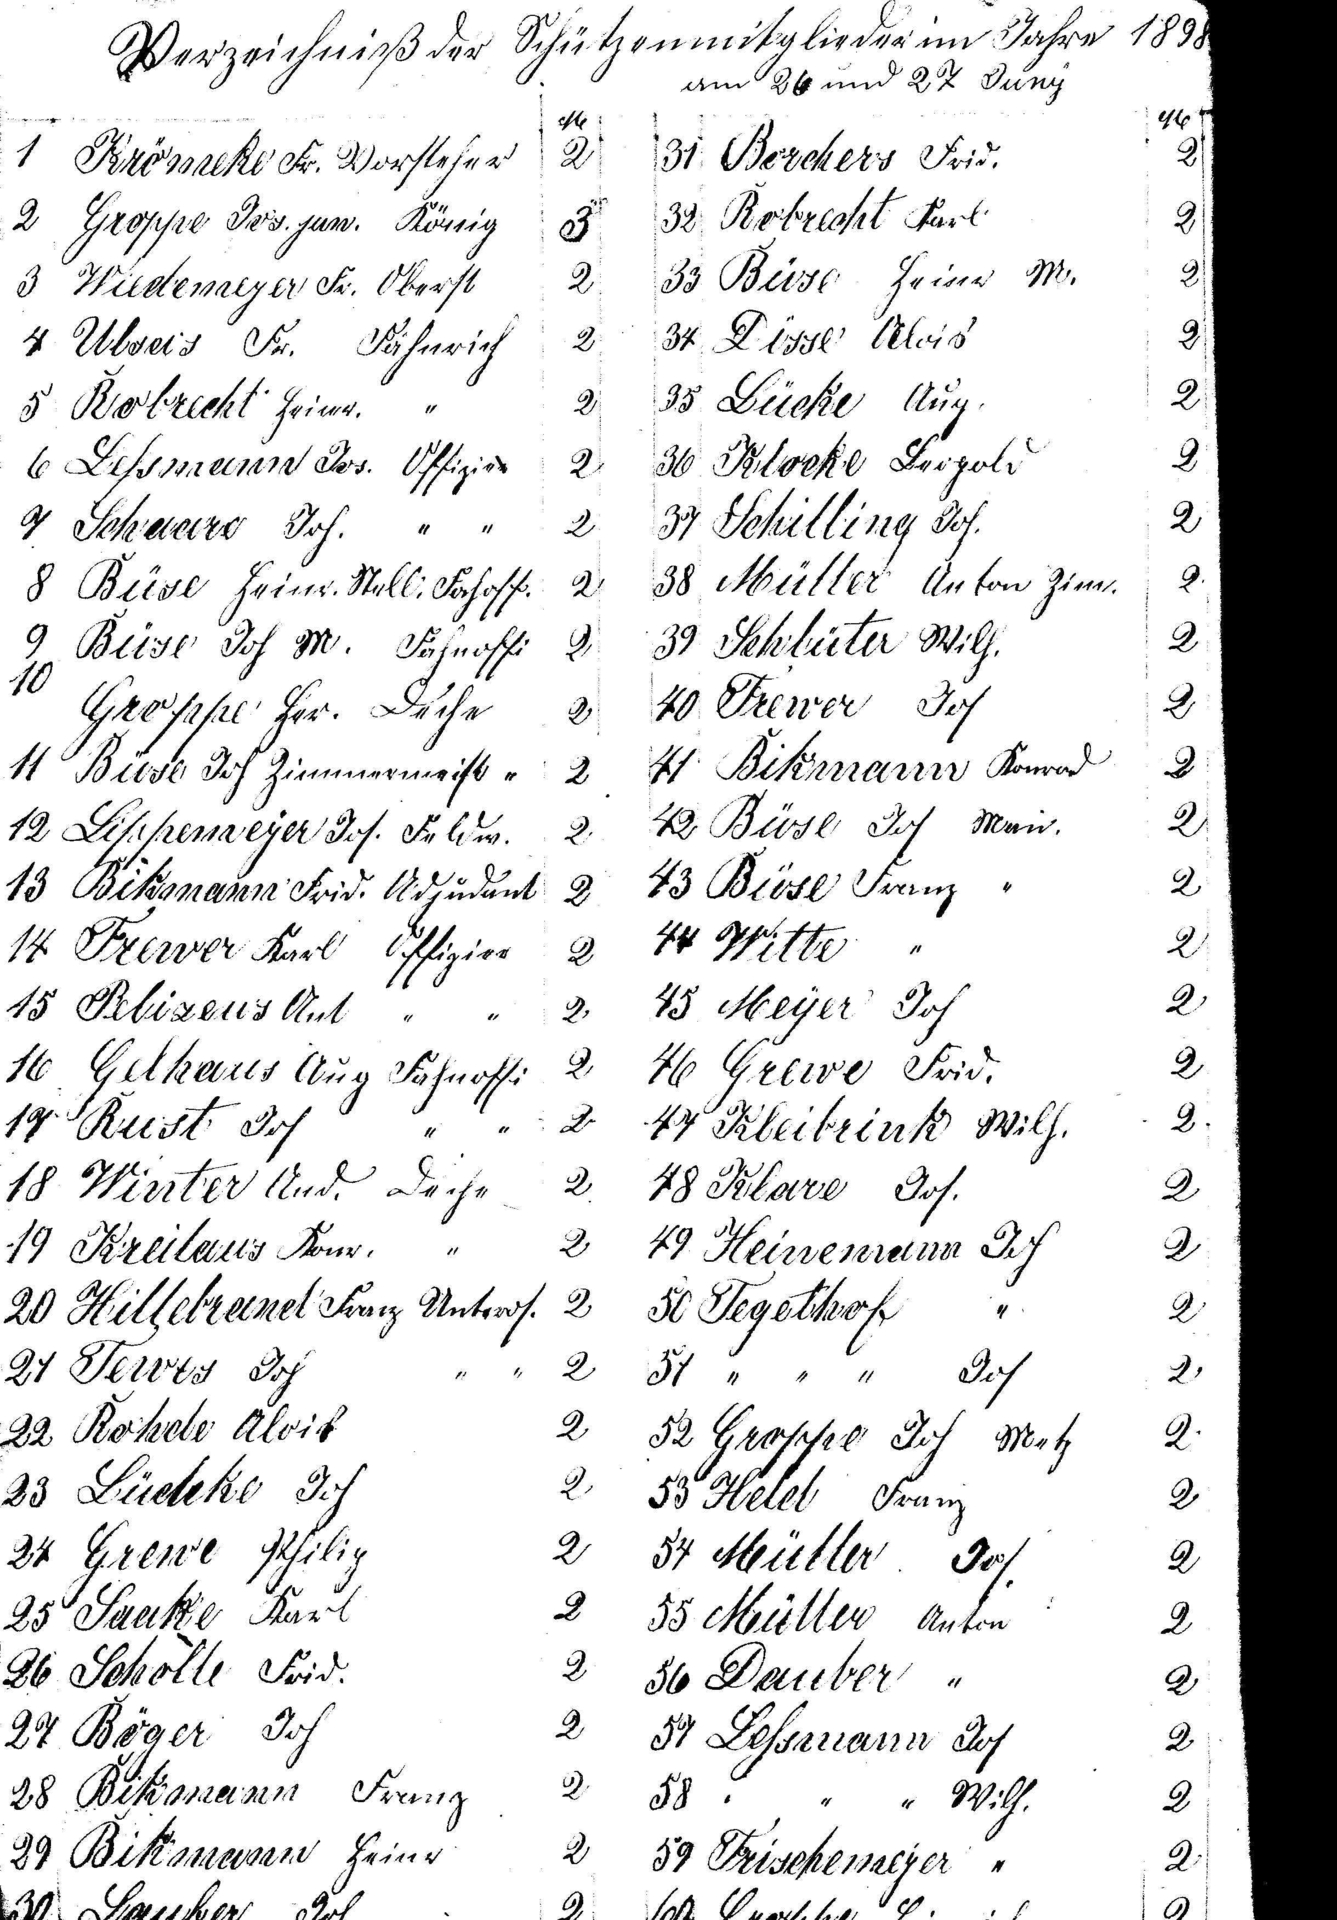 Verzeichniß der Schützenmitglieder im Jahre 1898
am 26 und 27 Juny
M
1 Krömeke Fr. Vorsteher 2
2 Groppe Jos. jun. König 3
3 Wiedemeyer Fr. Oberst 2
4 Fr. Fähnrich 2
5 Robrecht Heinr. " 2
6 Leßmann Jos. Offizier 2
7 Joh. " " 2
8 Büse Heinr. Stell. Fahoff. 2
9 Büse Joh M. Fähnoffi 2
10 Groppe Her. Deche 2
11 Büse Joh Zimmermeist " 2
12 Lippemeyer Jos. Feldw. 2
13 Bikmann Frid. Adjudant 2
14 Frewer Karl Offizier 2
15 Pelizeus Ant " " 2
16 Gelhaus Aug Fahnoffi 2
17 Rust Jos " " 2
18 Winter And. Deche 2
19 Kreilaus Konr. " 2
20 Hillebrand Franz Unterof. 2
21 Tewes Joh " " 2
22 Rohde Alois 2
23 Lüdeke Joh 2
24 Grewe Philip 2
25 Saake Karl 2
26 Scholle Frid. 2
27 Böger Joh 2
28 Bikmann Franz 2
29 Bikmann Heinr 2
30 2
M
31 Borchers Frid. 2
32 Robrecht Karl 2
33 Büse Heinr M. 2
34 Disse Alois 2
35 Lücke Aug. 2
36 Klocke Leopold 2
37 Schilling Jos. 2
38 Müller Anton Zim. 2
39 Schlüter Wilh. 2
40 Frewer Jos 2
41 Bikmann Konrad 2
42 Büse Jos Man. 2
43 Büse Franz " 2
44 Witte " 2
45 Meyer Joh 2
46 Grewe Frid. 2
47 Kleibrink Wilh. 2
48 Klare Jos. 2
49 Heinemann Joh 2
50 Tegethof " 2
51 " " " Jos 2
52 Groppe Joh Metz 2
53 Held Franz 2
54 Müller Jos. 2
55 Müller Anton 2
56 Dauber " 2
57 Leßmann Jos 2
58 " " " Wilh. 2
59 Frischemeyer " 2
60 Groppe 2